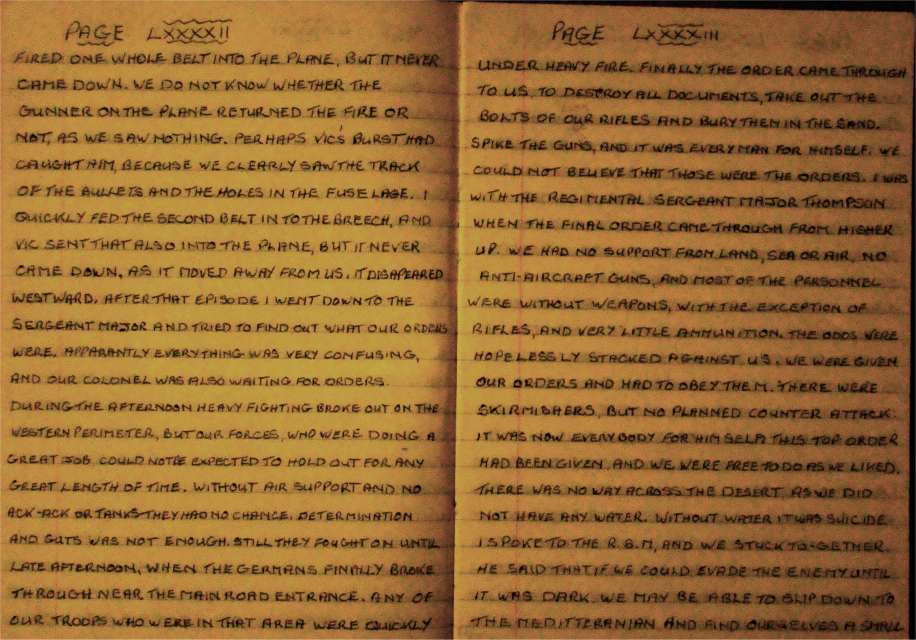 PAGE LXXXXII
FIRED ONE WHOLE BELT INTO THE PLANE, BUT IT NEVER
CAME DOWN. WE DO NOT KNOW WHETHER THE
GUNNER ON THE PLANE RETURNED THE FIRE OR
NOT, AS WE SAW NOTHING. PERHAPS VIC'S BURST HAD
CAUGHT HIM, BECAUSE WE CLEARLY SAW THE TRACK
OF THE BULLETS AND THE HOLES IN THE FUSELAGE. I
QUICKLY FED THE SECOND BELT IN TO THE BREECH, AND
VIC SENT THAT ALSO INTO THE PLANE, BUT IT NEVER
CAME DOWN. AS IT MOVED AWAY FROM US, IT DISAPEARED
WESTWARD. AFTER THAT EPISODE I WENT DOWN TO THE
SERGEANT MAJOR AND TRIED TO FIND OUT WHAT OUR ORDERS
WERE. APPARANTLY EVERYTHING WAS VERY CONFUSING,
AND OUR COLONEL WAS ALSO WAITING FOR ORDERS.
DURING THE AFTERNOON HEAVY FIGHTING BROKE OUT ON THE
WESTERN PERIMETER, BUT OUR FORCES, WHO WERE DOING A
GREAT JOB COULD NOT BE EXPECTED TO HOLD OUT FOR ANY
GREAT LENGTH OF TIME. WITHOUT AIR SUPPORT AND NO
ACK-ACK OR TANKS THEY HAD NO CHANCE. DETERMINATION
AND GUTS WAS NOT ENOUGH. STILL THEY FOUGHT ON UNTIL
LATE AFTERNOON, WHEN THE GERMANS FINALLY BROKE
THROUGH NEAR THE MAIN ROAD ENTRANCE. ANY OF
OUR TROOPS WHO WERE IN THAT AREA WERE QUICKLY
PAGE LXXXXIII
UNDER HEAVY FIRE. FINALLY THE ORDER CAME THROUGH
TO US. TO DESTROY ALL DOCUMENTS, TAKE OUT THE
BOLTS OF OUR RIFLES AND BURY THEM IN THE SAND.
SPIKE THE GUNS, AND IT WAS EVERY MAN FOR HIMSELF. WE
COULD NOT BELIEVE THAT THOSE WERE THE ORDERS. I WAS
WITH THE REGIMENTAL SERGEANT MAJOR THOMPSON
WHEN THE FINAL ORDER CAME THROUGH FROM HIGHER
UP. WE HAD NO SUPPORT FROM LAND, SEA OR AIR, NO
ANTI-AIRCRAFT GUNS, AND MOST OF THE PERSONNEL
WERE WITHOUT WEAPONS, WITH THE EXCEPTION OF
RIFLES, AND VERY LITTLE AMMUNITION. THE ODDS WERE
HOPELESSLY STACKED AGAINST US. WE WERE GIVEN
OUR ORDERS AND HAD TO OBEY THEM. THERE WERE
SKIRMISHERS, BUT NO PLANNED COUNTER ATTACK.
IT WAS NOW EVERYBODY FOR HIMSELF. THIS TOP ORDER
HAD BEEN GIVEN, AND WE WERE FREE TO DO AS WE LIKED.
THERE WAS NO WAY ACROSS THE DESERT AS WE DID
NOT HAVE ANY WATER. WITHOUT WATER IT WAS SUICIDE.
I SPOKE TO THE R.S.M, AND WE STUCK TO-GETHER.
HE SAID THAT IF WE COULD EVADE THE ENEMY UNTIL
IT WAS DARK WE MAY BE ABLE TO SLIP DOWN TO
THE MEDITTERANIAN AND FIND OURSELVES A SMALL